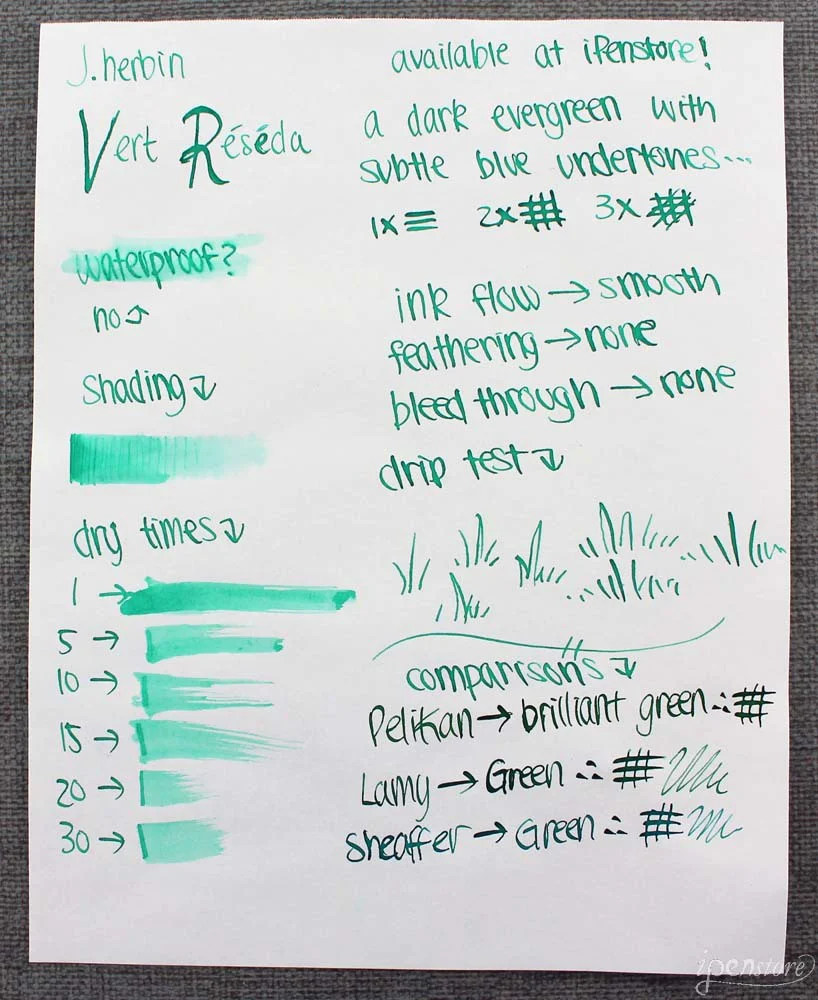 J.herbin
Vert Réséda
waterproof?
no
shading
dry times
1 →
5 →
10 →
15 →
20 →
30 →
available at iPenstore!
a dark evergreen with
subtle blue undertones...
1x 2x 3x
ink flow → smooth
feathering → none
bleed through → none
drip test
comparisons
Pelikan → brilliant green ∴
Lamy → Green ∴
Sheaffer → Green ∴
ipenstore